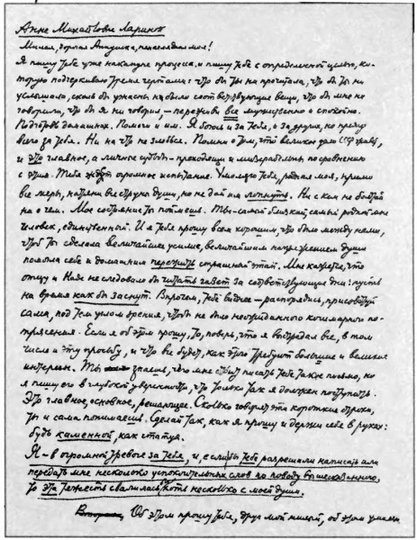 Анне Михайловне Лариной
Милая, дорогая Аннушка, ненаглядная моя!
Я пишу тебе уже накануне процесса, и пишу тебе с определенной целью, ко-
торую подчеркиваю тремя чертами: что бы ты ни прочитала, что бы ты ни
услышала, сколь бы ужасны ни были соответствующие вещи, что бы мне ни
говорили, что бы я ни говорил, — переживи все мужественно и спокойно.
Подготовь домашних. Помоги и им. Я боюсь и за тебя, и за других, но прежде
всего за тебя. Ни на что не злобься. Помни о том, что великое дело СССР живет,
и это главное, а личные судьбы — преходящи и мизерабельны по сравнению
с этим. Тебя ждет огромное испытание. Умоляю тебя, родная моя, прими
все меры, натяни все струны души, но не дай им лопнуть. Ни с кем не болтай
ни о чем. Мое состояние ты поймешь. Ты — самый близкий, самый родной мне
человек, единственный. И я тебя прошу всем хорошим, что было между нами,
чтоб ты сделала величайшее усилие, величайшим напряжением души
помогла себе и домашним пережить страшный этап. Мне кажется, что
отцу и Наде не следовало бы читать газет за соответствующие дни: пусть
на время как бы заснут. Впрочем, тебе виднее — распорядись, присоветуй
сама, под углом зрения, чтобы не было неожиданного кошмарного по-
трясения. Если я об этом прошу, то, поверь, что я выстрадал все, в том
числе и эту просьбу, и что все будет, как этого требуют большие и великие
интересы. Ты знаешь, чего мне стоит писать тебе такое письмо, но
я пишу его в глубокой уверенности, что только так я должен поступать.
Это главное, основное, решающее. Сколько говорят эти короткие строки,
ты и сама понимаешь. Сделай так, как я прошу и держи себя в руках:
будь каменной, как статуя.
Я — в огромной тревоге за тебя, и, если бы тебе разрешили написать или
передать мне несколько успокоительных слов по поводу вышесказанного,
то эта тяжесть свалилась бы хоть несколько с моей души.
Об этом прошу тебя, друг мой милый, об этом умоляю.